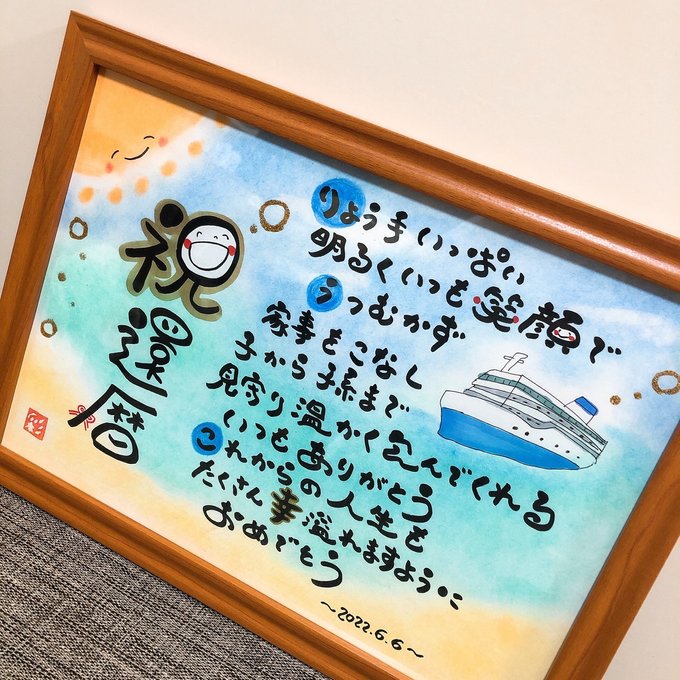 祝
還暦
りょう手いっぱい
明るくいつも笑顔で
うつむかず
家事をこなし
子から孫まで
見守り温かく包んでくれる
いつもありがとう
これからの人生も
たくさん幸溢れますように
おめでとう
～2022.6.6～